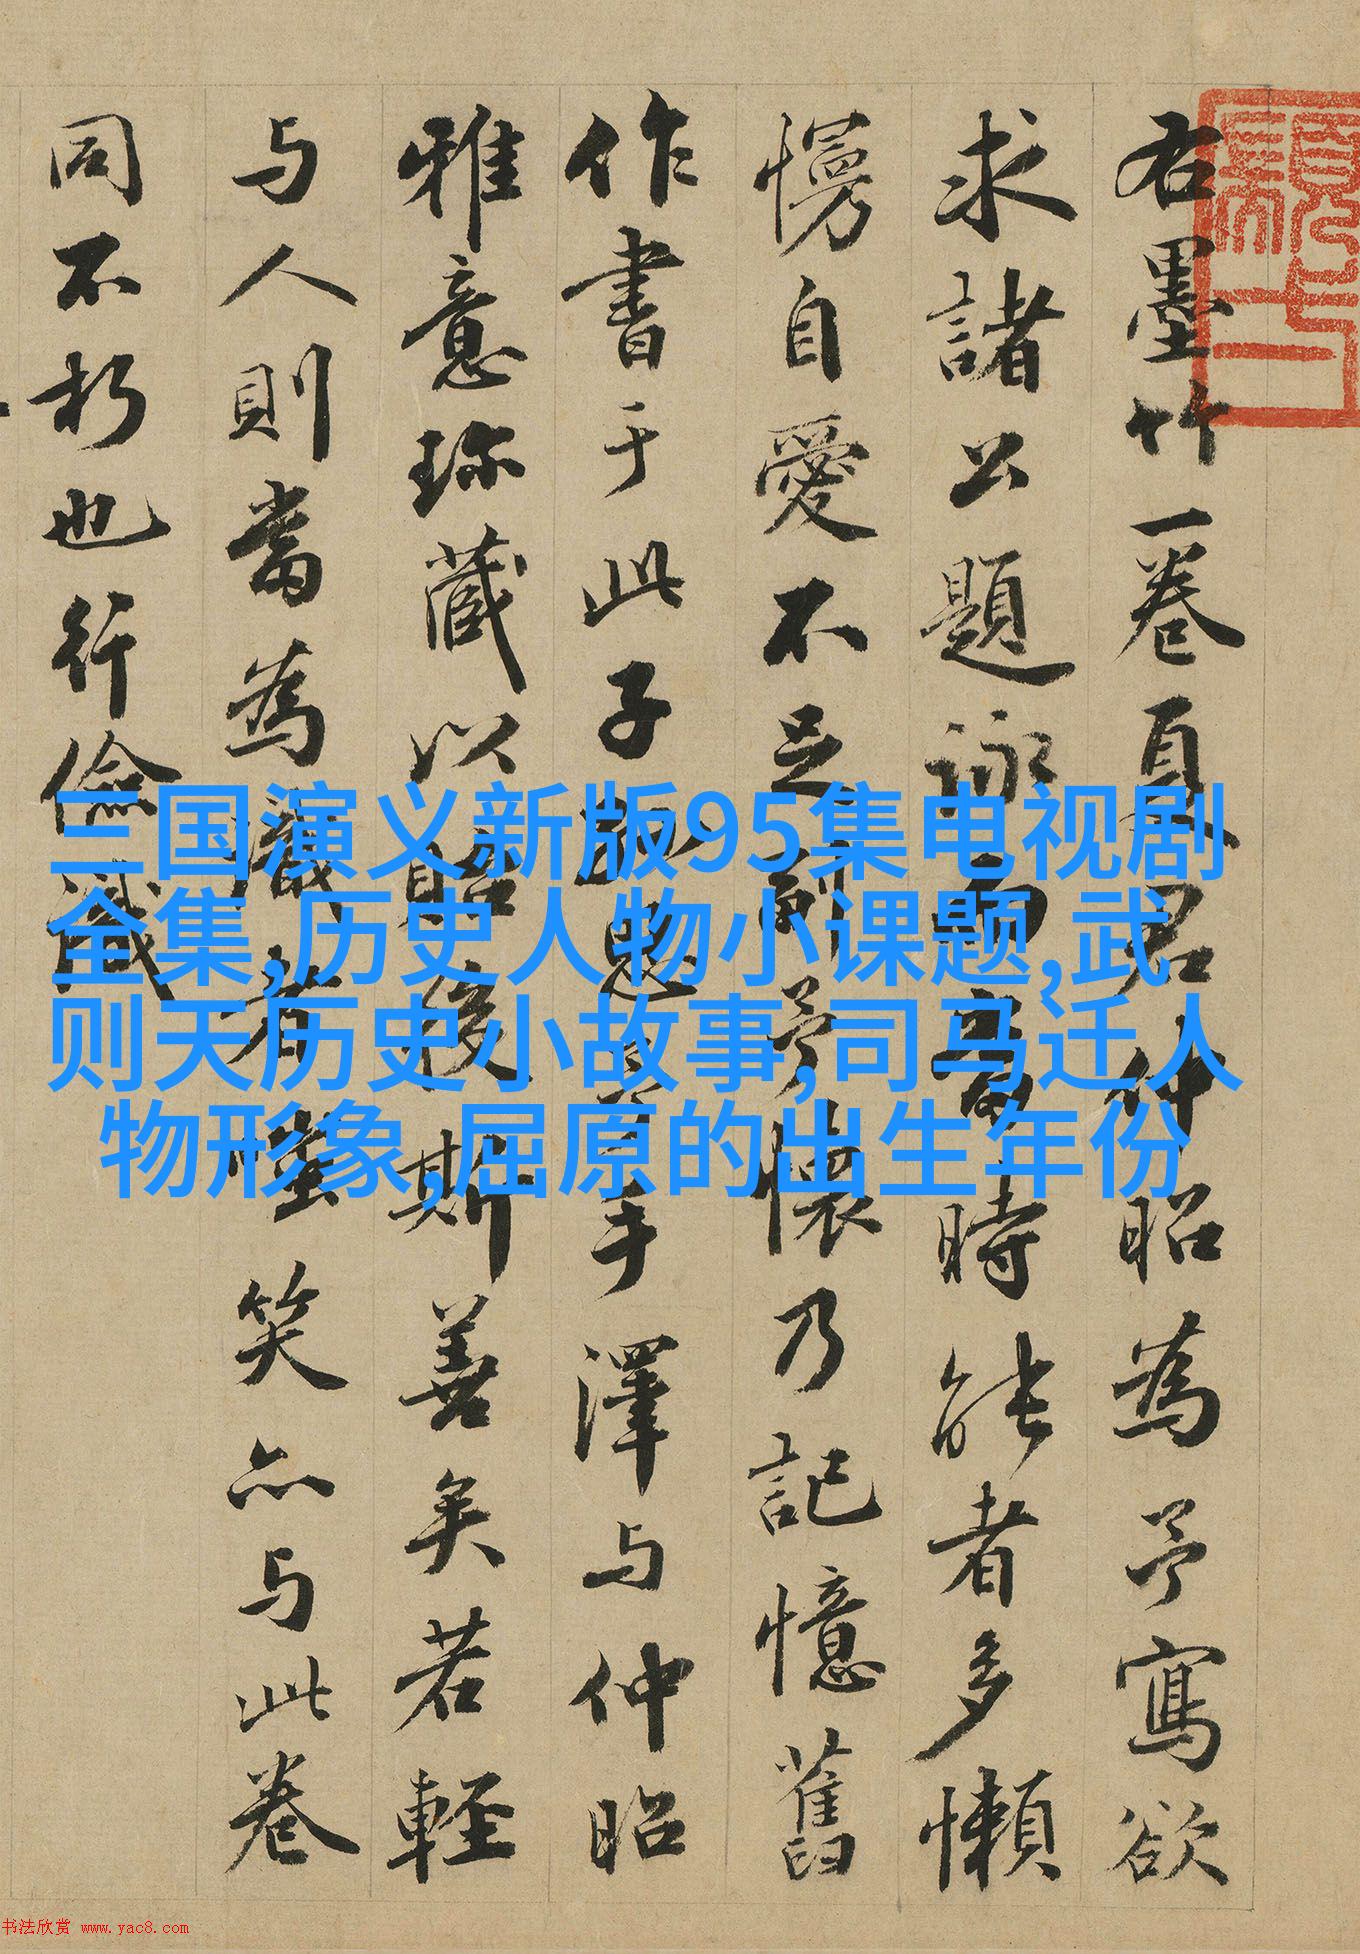 右墨竹一卷夏君仲昭為予寫欲
求諸公題詠而當時能者多懶
慢自愛不足副予懷乃記憶舊
作書于此子孫思其手澤与仲昭
雅意珎藏以貽後斯善矣若輕
与人則當為識者蚩笑亦与此卷
同不朽也行儉識
三国演义新版95集电视剧
全集,历史人物小课题,武
则天历史小故事,司马迁人
物形象,屈原的出生年份
书法欣赏 www.yac8.com